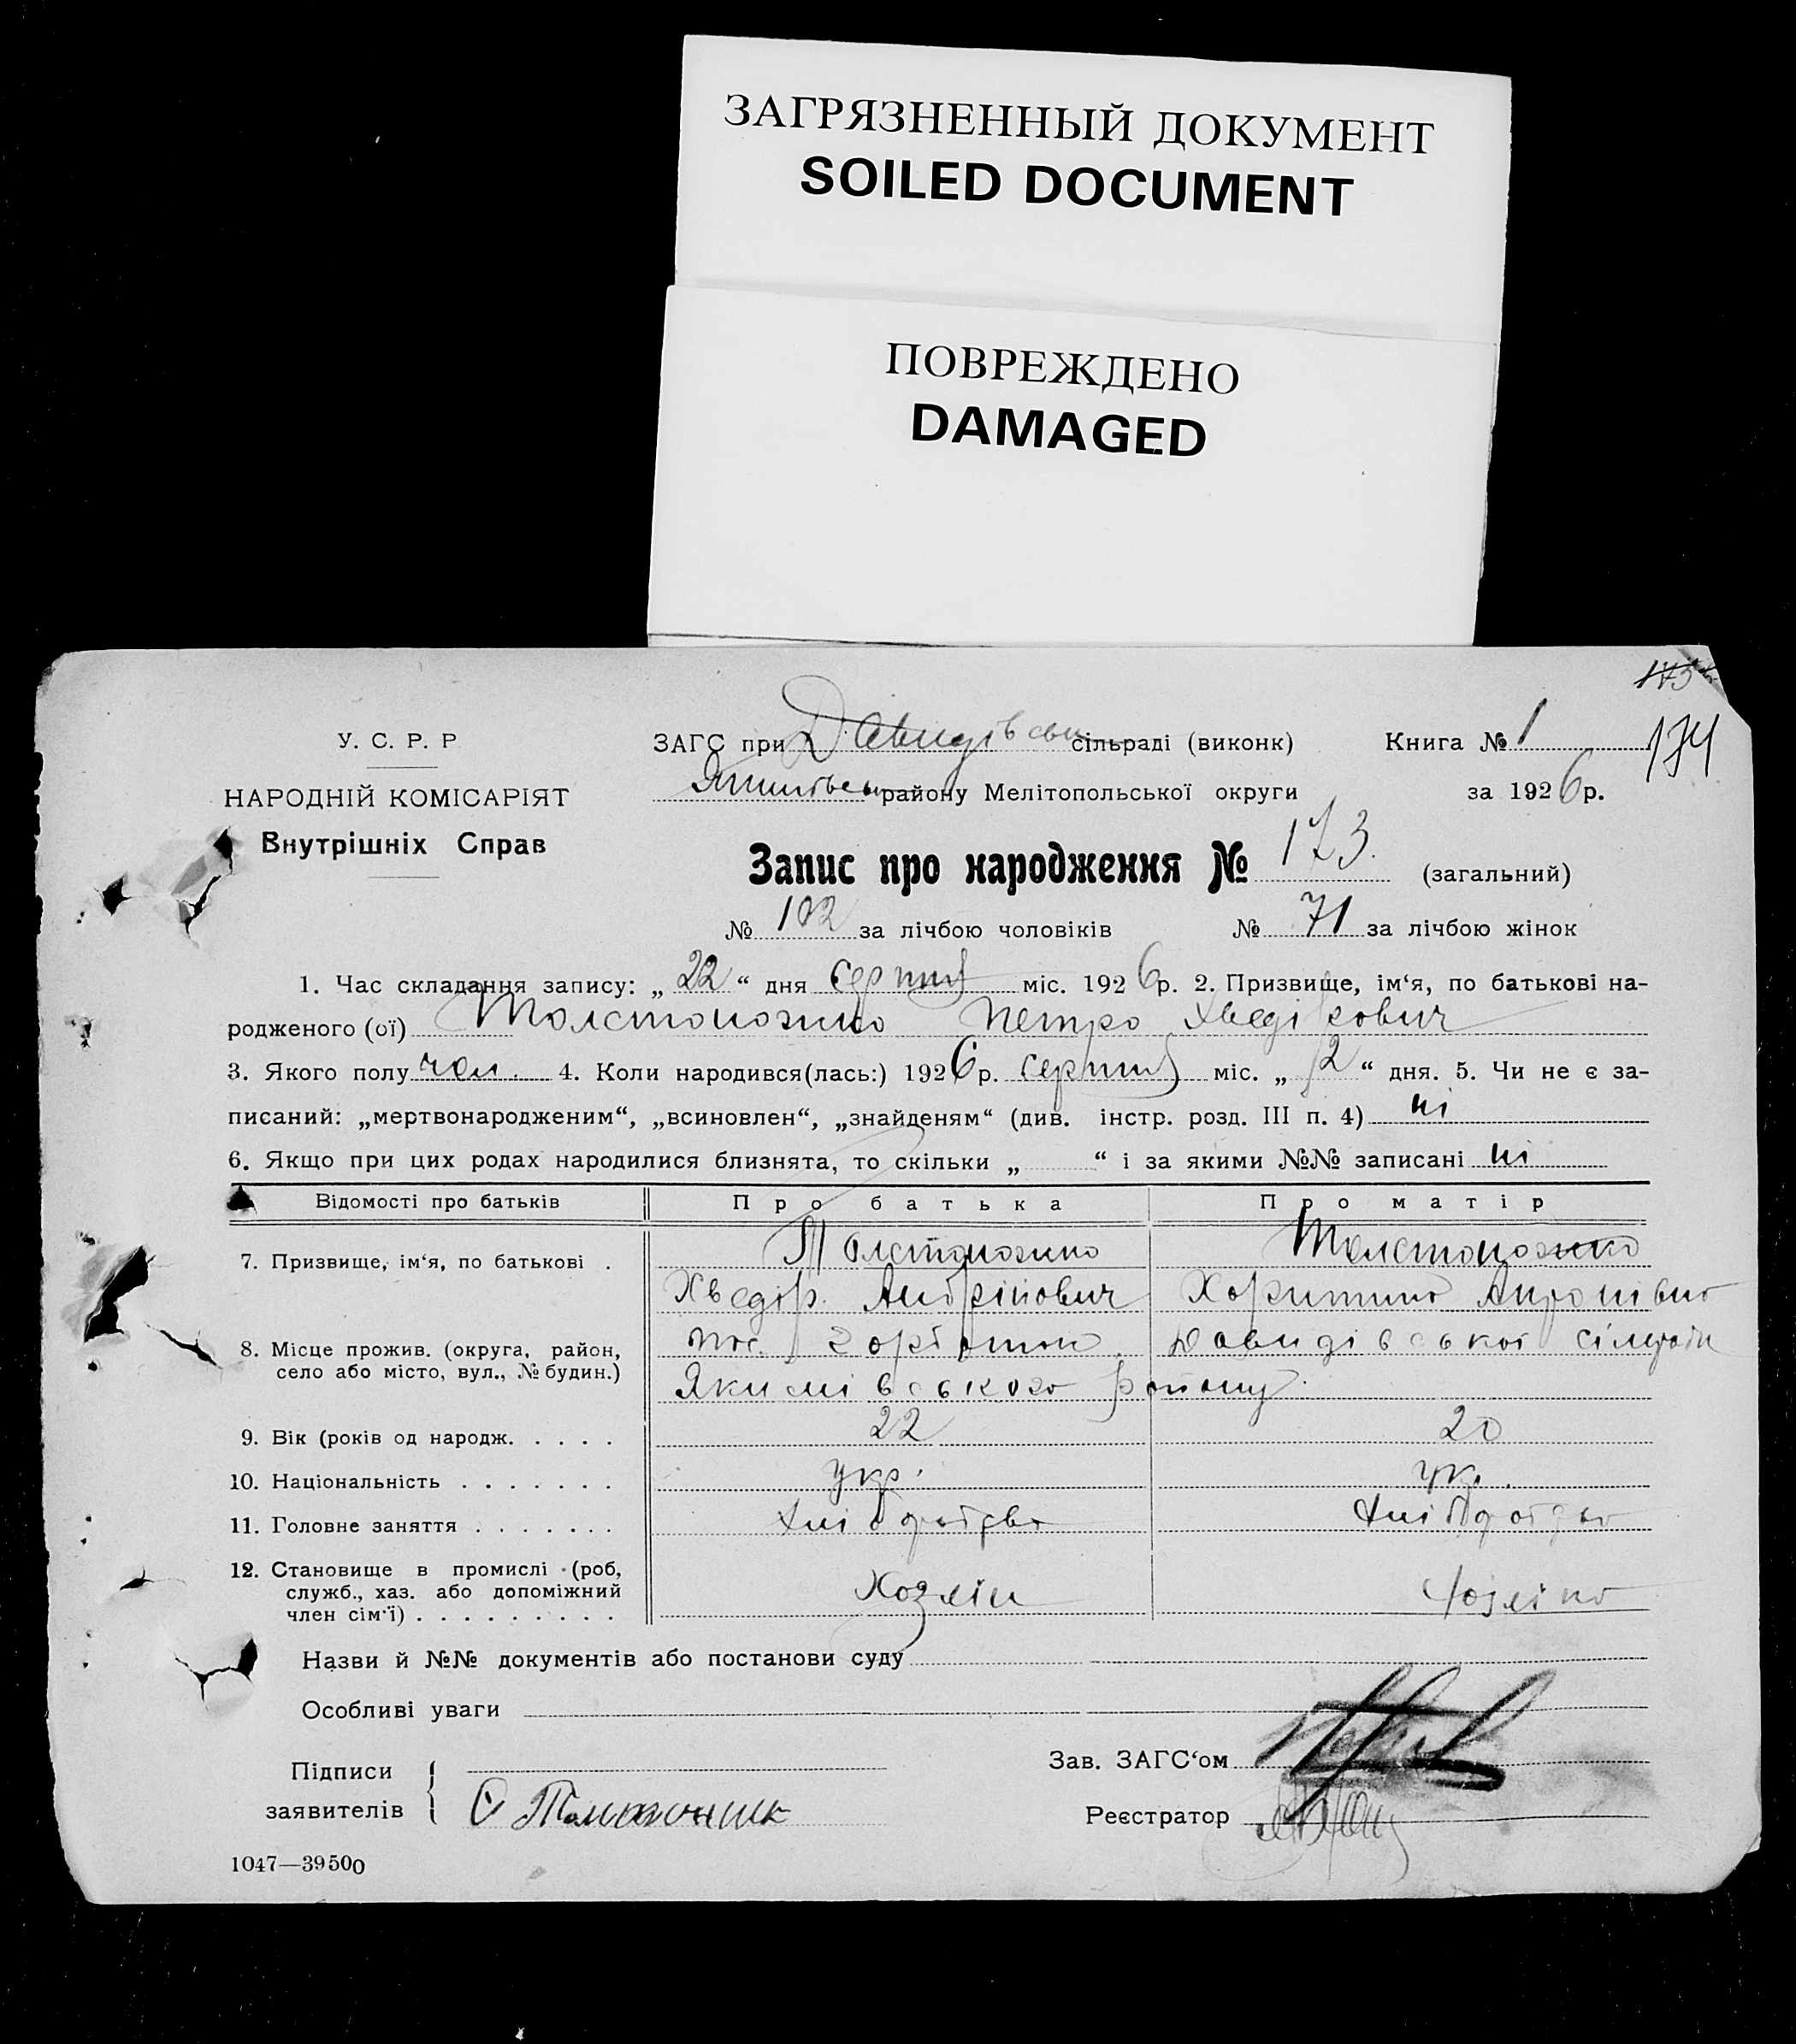 ЗАГРЯЗНЕННЫЙ ДОКУМЕНТ
SOILED DOCUMENT
ПОВРЕЖДЕНО
DAMAGED
174
У. С. Р. Р
НАРОДНІЙ КОМІСАРІЯТ
Внутрішніх Справ
ЗАГС при Давидівськ сільраді (виконк) Книга № 1
району Мелітопольської округи за 1926 р.
Запис про народження № 173. (загальний)
№ 102 за лічбою чоловіків № 71 за лічбою жінок
1. Час складання запису: „ 22 “ дня серпня міс. 1926 р. 2. Призвище, ім‘я, по батькові на-
родженого (ої) Толстоножко Петро Хведірович
3. Якого полу чол. 4. Коли народився(лась:) 1926 р. серпня міс. „ 12 “ дня. 5. Чи не є за-
писаний: „мертвонародженим“, „всиновлен“, „знайденям“ (див. інстр. розд. III п. 4) ні
6. Якщо при цих родах народилися близнята, то скільки „ “ і за якими №№ записані ні
Відомості про батьків Про батька Про матір
7. Призвище, ім‘я, по батькові . Толстоножко Толстоножко
Хведір. Андрійович Харитина
8. Місце прожив. (округа, район, село або місто, вул., № будин.) пос. Давидівської сільради
Якимівського району.
9. Вік (років од народж. . . . . 22 20
10. Національність . . . . . . . укр. ук.
11. Головне заняття . . . . . . . хліборобство хліборобство
12. Становище в промислі (роб, служб., хаз. або допоміжний член сім‘ї) . . . . . . . . . Хозяін хозяіка
Назви й №№ документів або постанови суду
Особливі уваги
Підписи
заявителів
Зав. ЗАГС‘ом
Реєстратор
1047—39500